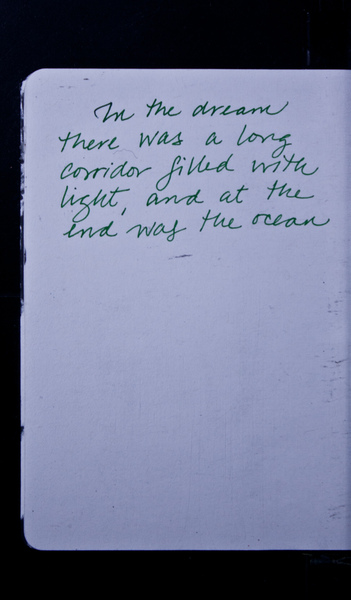 In the dream
there was a long
corridor filled with
light, and at the
end was the ocean